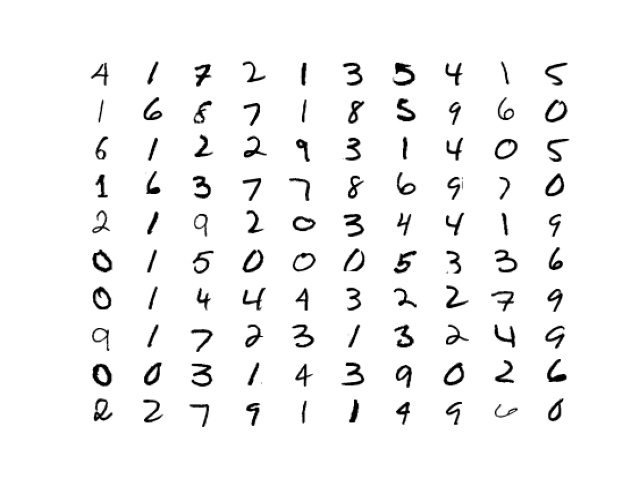 4 1 7 2 1 3 5 4 1 5
1 6 8 7 1 8 5 9 6 0
6 1 2 2 9 3 1 4 0 5
1 6 3 7 7 8 6 9 7 0
2 1 9 2 0 3 4 4 1 9
0 1 5 0 0 0 5 3 3 6
0 1 4 4 4 3 2 2 7 9
9 1 7 2 3 1 3 2 4 9
0 0 3 1 4 3 9 0 2 6
2 2 7 9 1 1 4 9 6 0